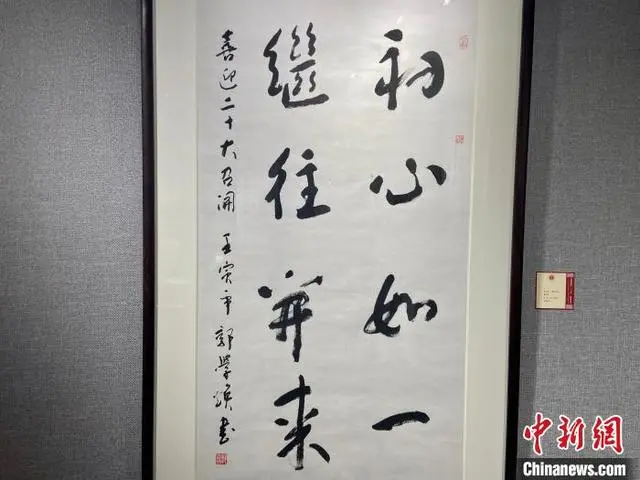 初心如一
繼往开来
喜迎二十大召開 壬寅年 郭学焕书
中新網
Chinanews.com